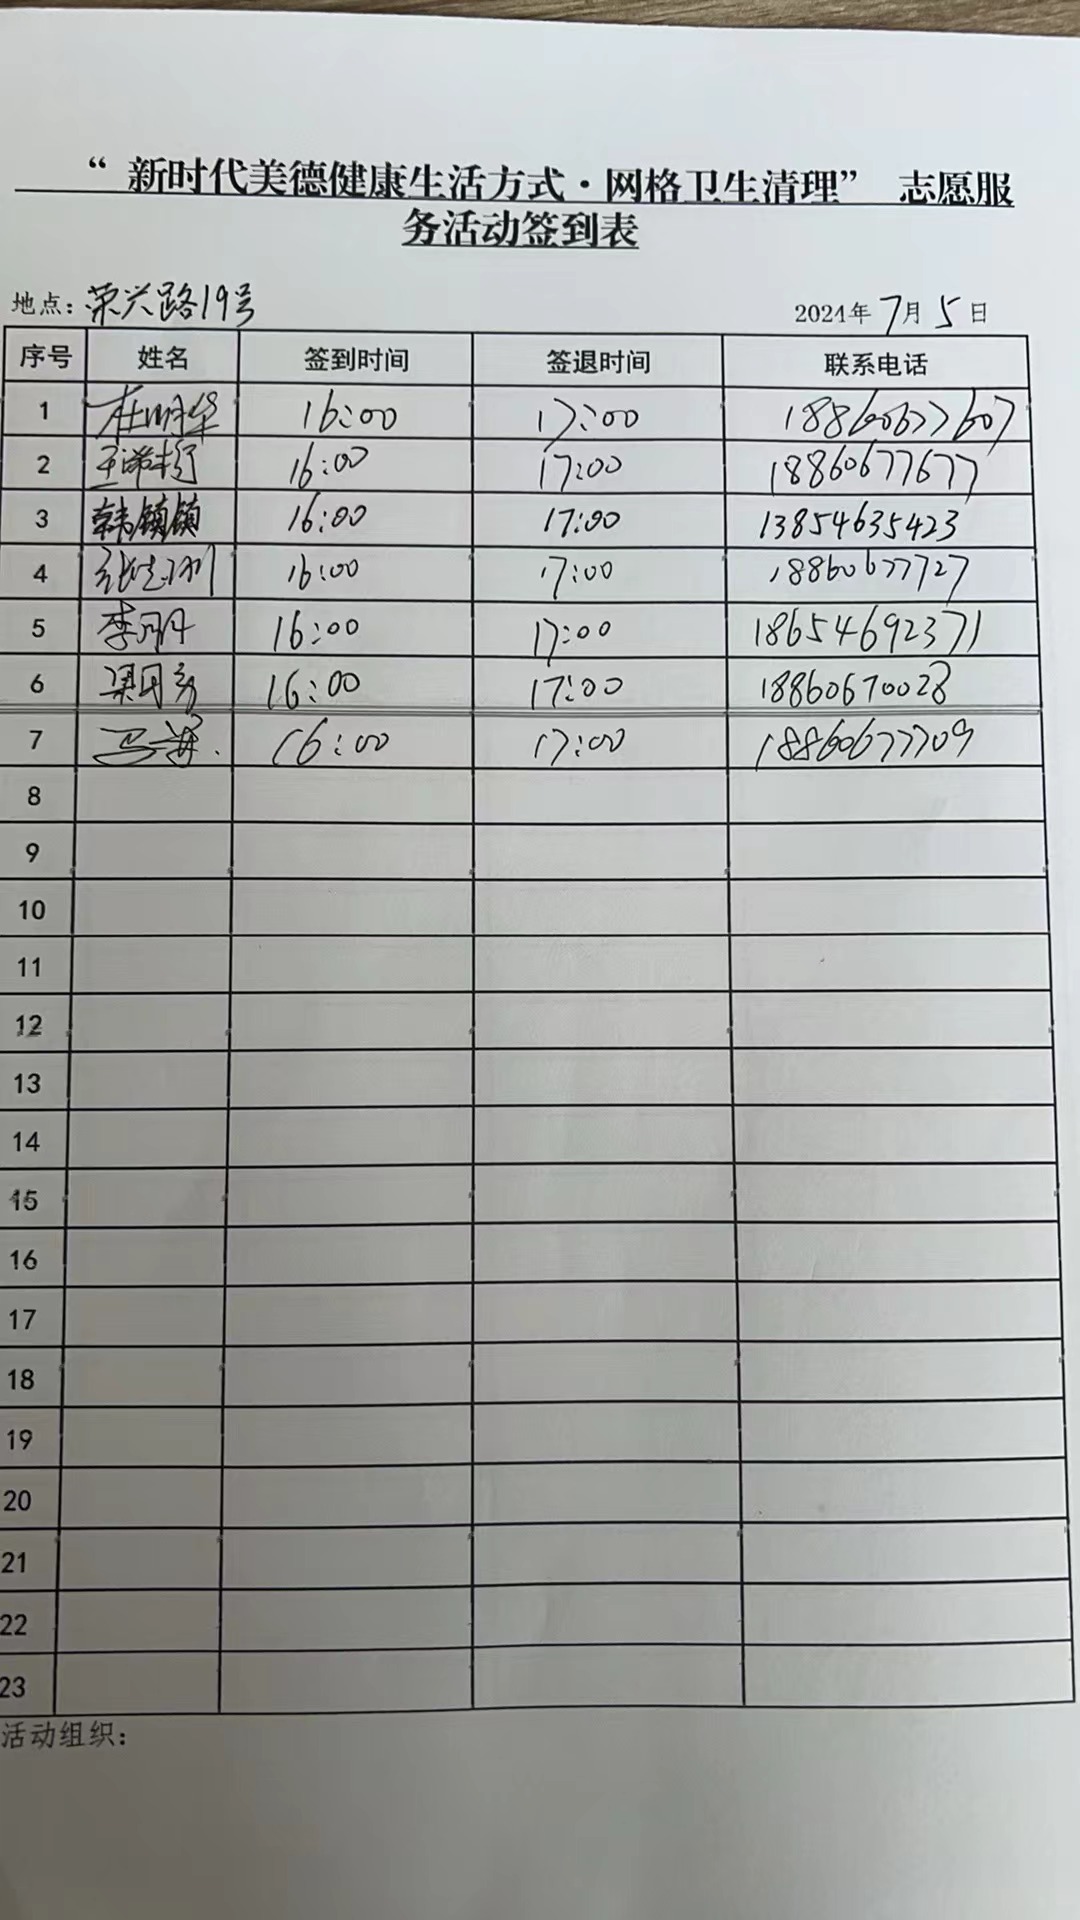 “ 新时代美德健康生活方式·网格卫生清理” 志愿服
务活动签到表
地点：荣兴路19号 2024年7月5日
序号 姓名 签到时间 签退时间 联系电话
1 杜明华 16:00 17:00 18860677607
2 16:00 17:00 18860677677
3 韩镇镇 16:00 17:00 13854635423
4 16:00 17:00 18860677727
5 李丹丹 16:00 17:00 18654692371
6 16:00 17:00 18860670028
7 马海 16:00 17:00 18860677709
8
9
10
11
12
13
14
15
16
17
18
19
20
21
22
23
活动组织：